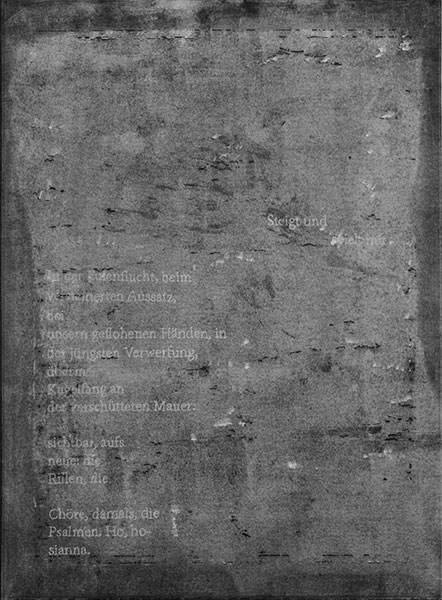 Steigt und
spielt mit.
In der Eulenflucht, beim
versteinerten Aussatz,
bei
unsern geflohenen Händen, in
der jüngsten Verwerfung,
überm
Kugelfang an
der verschütteten Mauer:
sichtbar, aufs
neue: die
Rillen, die
Chöre, damals, die
Psalmen. Ho, ho-
sianna.